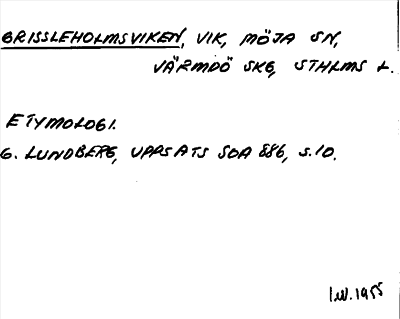 GRISSLEHOLMSVIKEN, VIK, MÖJA SN,
VÄRMDÖ SKG, STHLMS L.
ETYMOLOGI.
G. LUNDBERG, UPPSATS SOA 886, S.10.
I.W. 1955